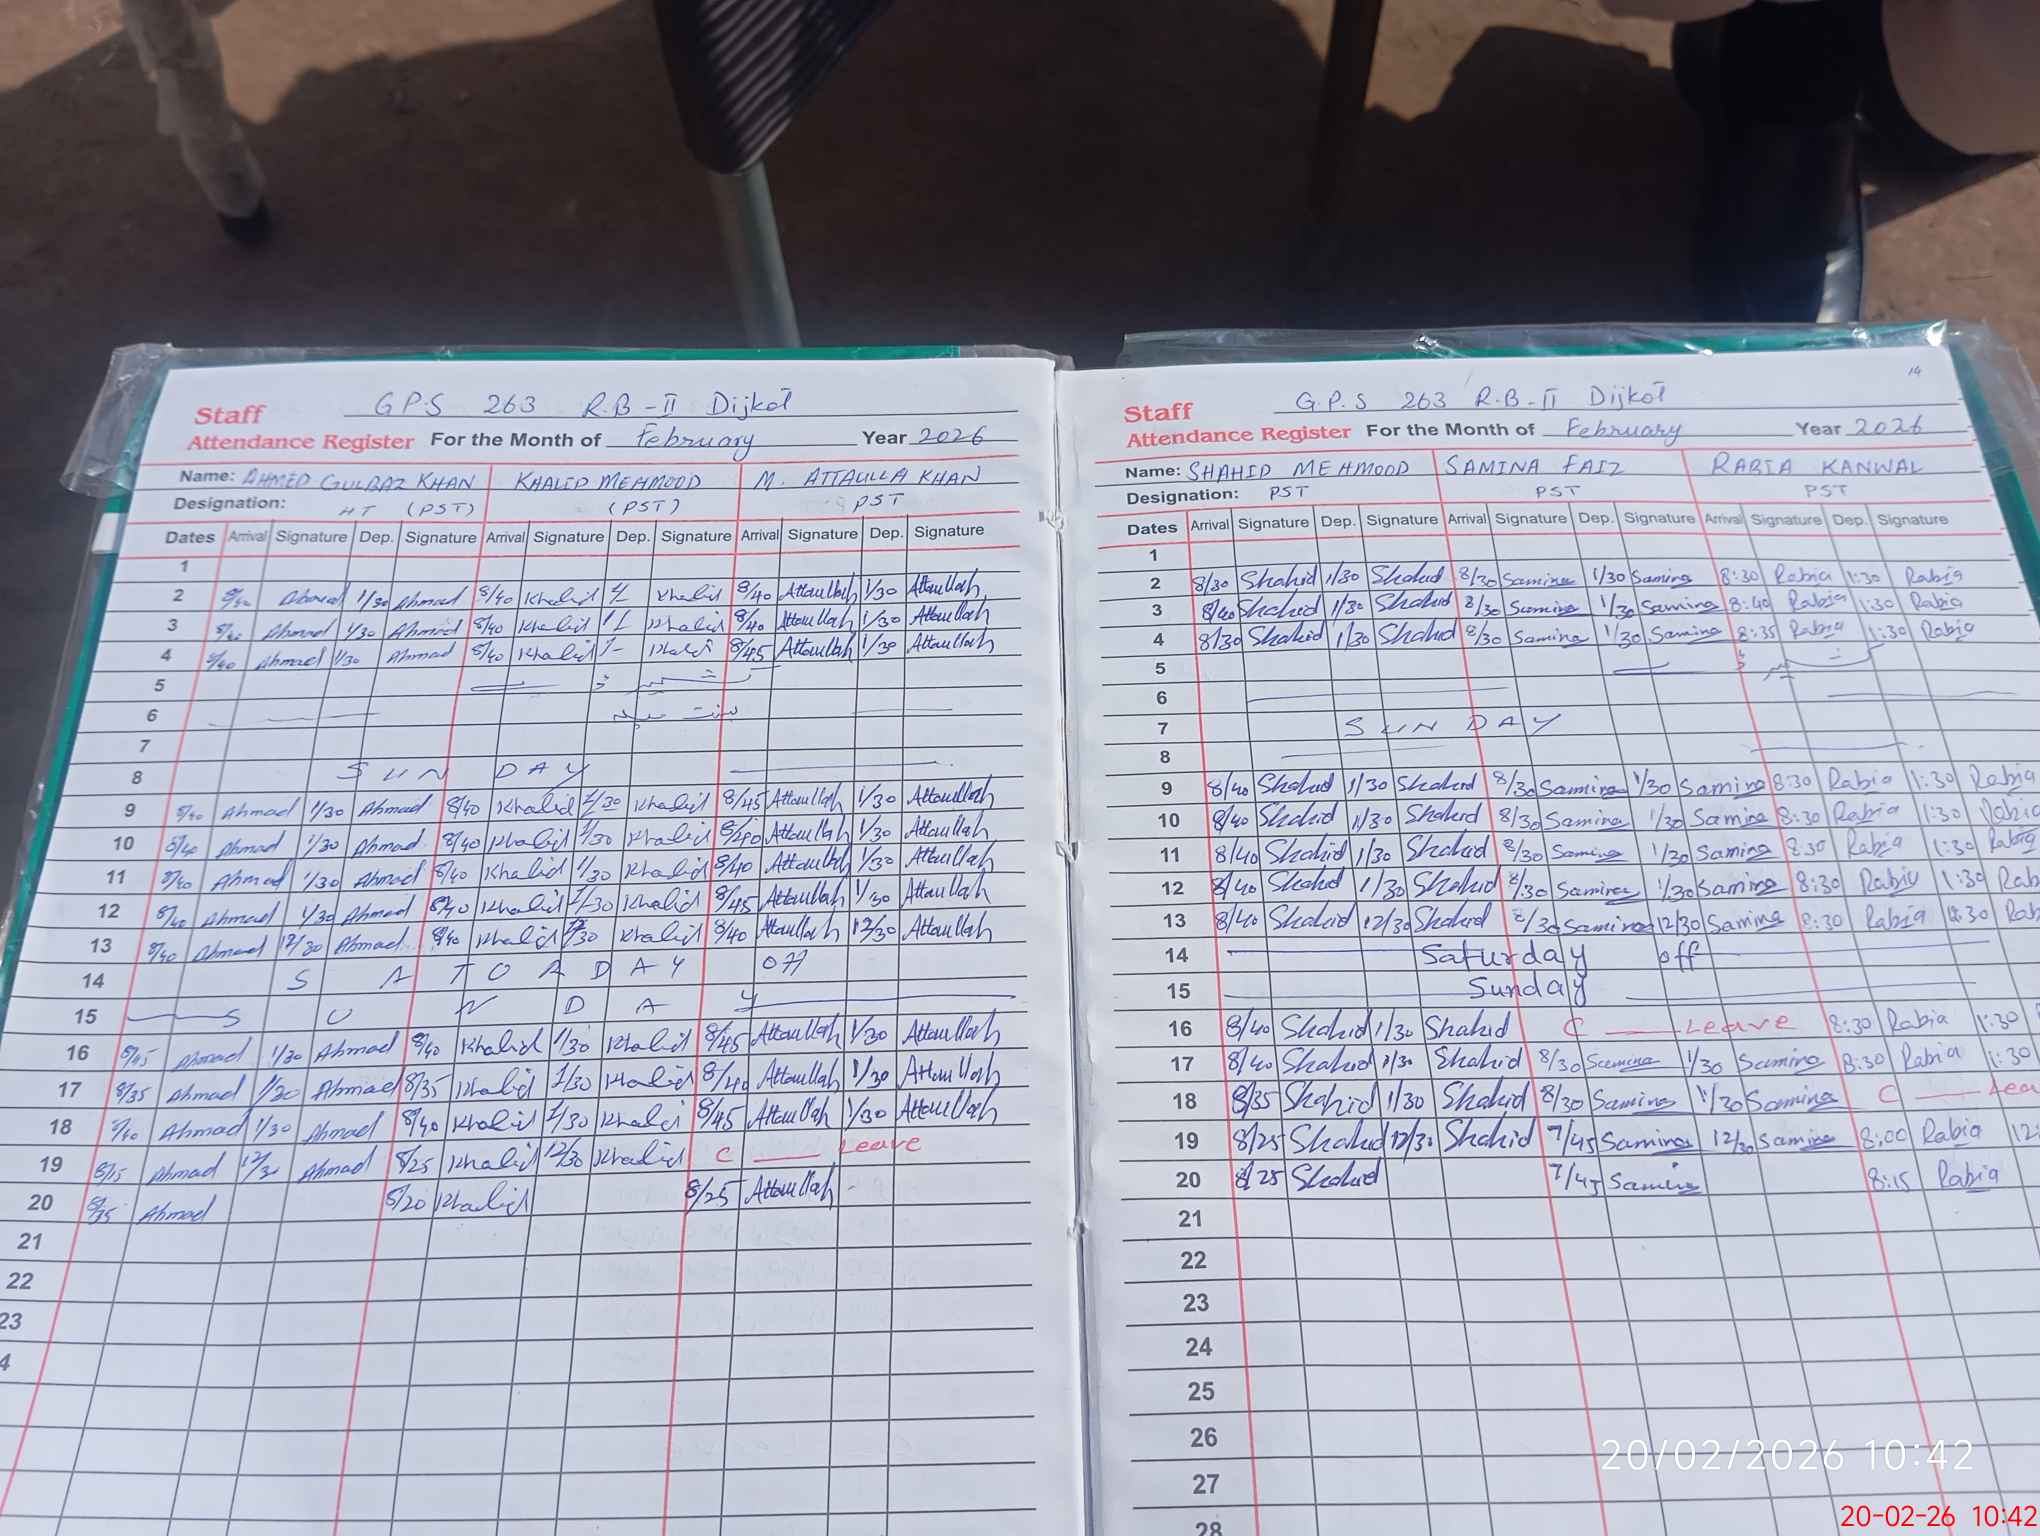 G.P.S 263 R.B-II Dijkot
Staff
Attendance Register For the Month of February Year 2026
Name: AHMED GULBAZ KHAN KHALID MEHMOOD M. ATTAULLA KHAN
Designation: HT (PST) (PST) PST
Dates Arrival Signature Dep. Signature Arrival Signature Dep. Signature Arrival Signature Dep. Signature
1
2 8/40 Ahmad 1/30 Ahmad 8/40 Khalid Khalid 8/40 Attaullah 1/30 Attaullah
3 8/40 Ahmad 1/30 Ahmad 8/40 Khalid Khalid 8/40 Attaullah 1/30 Attaullah
4 8/40 Ahmad 1/30 Ahmad 8/40 Khalid Khalid 8/45 Attaullah 1/30 Attaullah
5
6
7
8 SUN DAY
9 8/40 Ahmad 1/30 Ahmad 8/40 Khalid 1/30 Khalid 8/45 Attaullah 1/30 Attaullah
10 8/40 Ahmad 1/30 Ahmad 8/40 Khalid 1/30 Khalid 8/40 Attaullah 1/30 Attaullah
11 8/40 Ahmad 1/30 Ahmad 8/40 Khalid 1/30 Khalid 8/40 Attaullah 1/30 Attaullah
12 8/40 Ahmad 1/30 Ahmad 8/40 Khalid 1/30 Khalid 8/45 Attaullah 1/30 Attaullah
13 8/40 Ahmad 12/30 Ahmad 8/40 Khalid 12/30 Khalid 8/40 Attaullah 12/30 Attaullah
14 S A T U A D A Y Off
15 S U N D A Y
16 8/45 Ahmad 1/30 Ahmad 8/40 Khalid 1/30 Khalid 8/45 Attaullah 1/30 Attaullah
17 8/35 Ahmad 1/30 Ahmad 8/35 Khalid 1/30 Khalid 8/40 Attaullah 1/30 Attaullah
18 8/40 Ahmad 1/30 Ahmad 8/40 Khalid 1/30 Khalid 8/45 Attaullah 1/30 Attaullah
19 8/15 Ahmad 12/30 Ahmad 8/25 Khalid 12/30 Khalid C Leave
20 8/35 Ahmad 8/20 Khalid 8/25 Attaullah
21
22
23
4
14
G.P.S 263 R.B-II Dijkot
Staff
Attendance Register For the Month of February Year 2026
Name: SHAHID MEHMOOD SAMINA FAIZ RABIA KANWAL
Designation: PST PST PST
Dates Arrival Signature Dep. Signature Arrival Signature Dep. Signature Arrival Signature Dep. Signature
1
2 8/30 Shahid 1/30 Shahid 8/30 Samina 1/30 Samina 8:30 Rabia 1:30 Rabia
3 8/40 Shahid 1/30 Shahid 8/30 Samina 1/30 Samina 8:40 Rabia 1:30 Rabia
4 8/30 Shahid 1/30 Shahid 8/30 Samina 1/30 Samina 8:35 Rabia 1:30 Rabia
5
6
7 SUN DAY
8
9 8/40 Shahid 1/30 Shahid 8/30 Samina 1/30 Samina 8:30 Rabia 1:30 Rabia
10 8/40 Shahid 1/30 Shahid 8/30 Samina 1/30 Samina 8:30 Rabia 1:30 Rabia
11 8/40 Shahid 1/30 Shahid 8/30 Samina 1/30 Samina 8:30 Rabia 1:30 Rabia
12 8/40 Shahid 1/30 Shahid 8/30 Samina 1/30 Samina 8:30 Rabia 1:30 Rab
13 8/40 Shahid 12/30 Shahid 8/30 Samina 12/30 Samina 8:30 Rabia 12:30 Rab
14 Saturday off
15 Sunday
16 8/40 Shahid 1/30 Shahid C Leave 8:30 Rabia 1:30
17 8/40 Shahid 1/30 Shahid 8/30 Samina 1/30 Samina 8:30 Rabia 1:30
18 8/35 Shahid 1/30 Shahid 8/30 Samina 1/30 Samina C Lea
19 8/25 Shahid 12/30 Shahid 7/45 Samina 12/30 Samina 8:00 Rabia 12:
20 8/25 Shahid 7/45 Samina 8:15 Rabia
21
22
23
24
25
26
27
28
20/02/2026 10:42
20-02-26 10:42